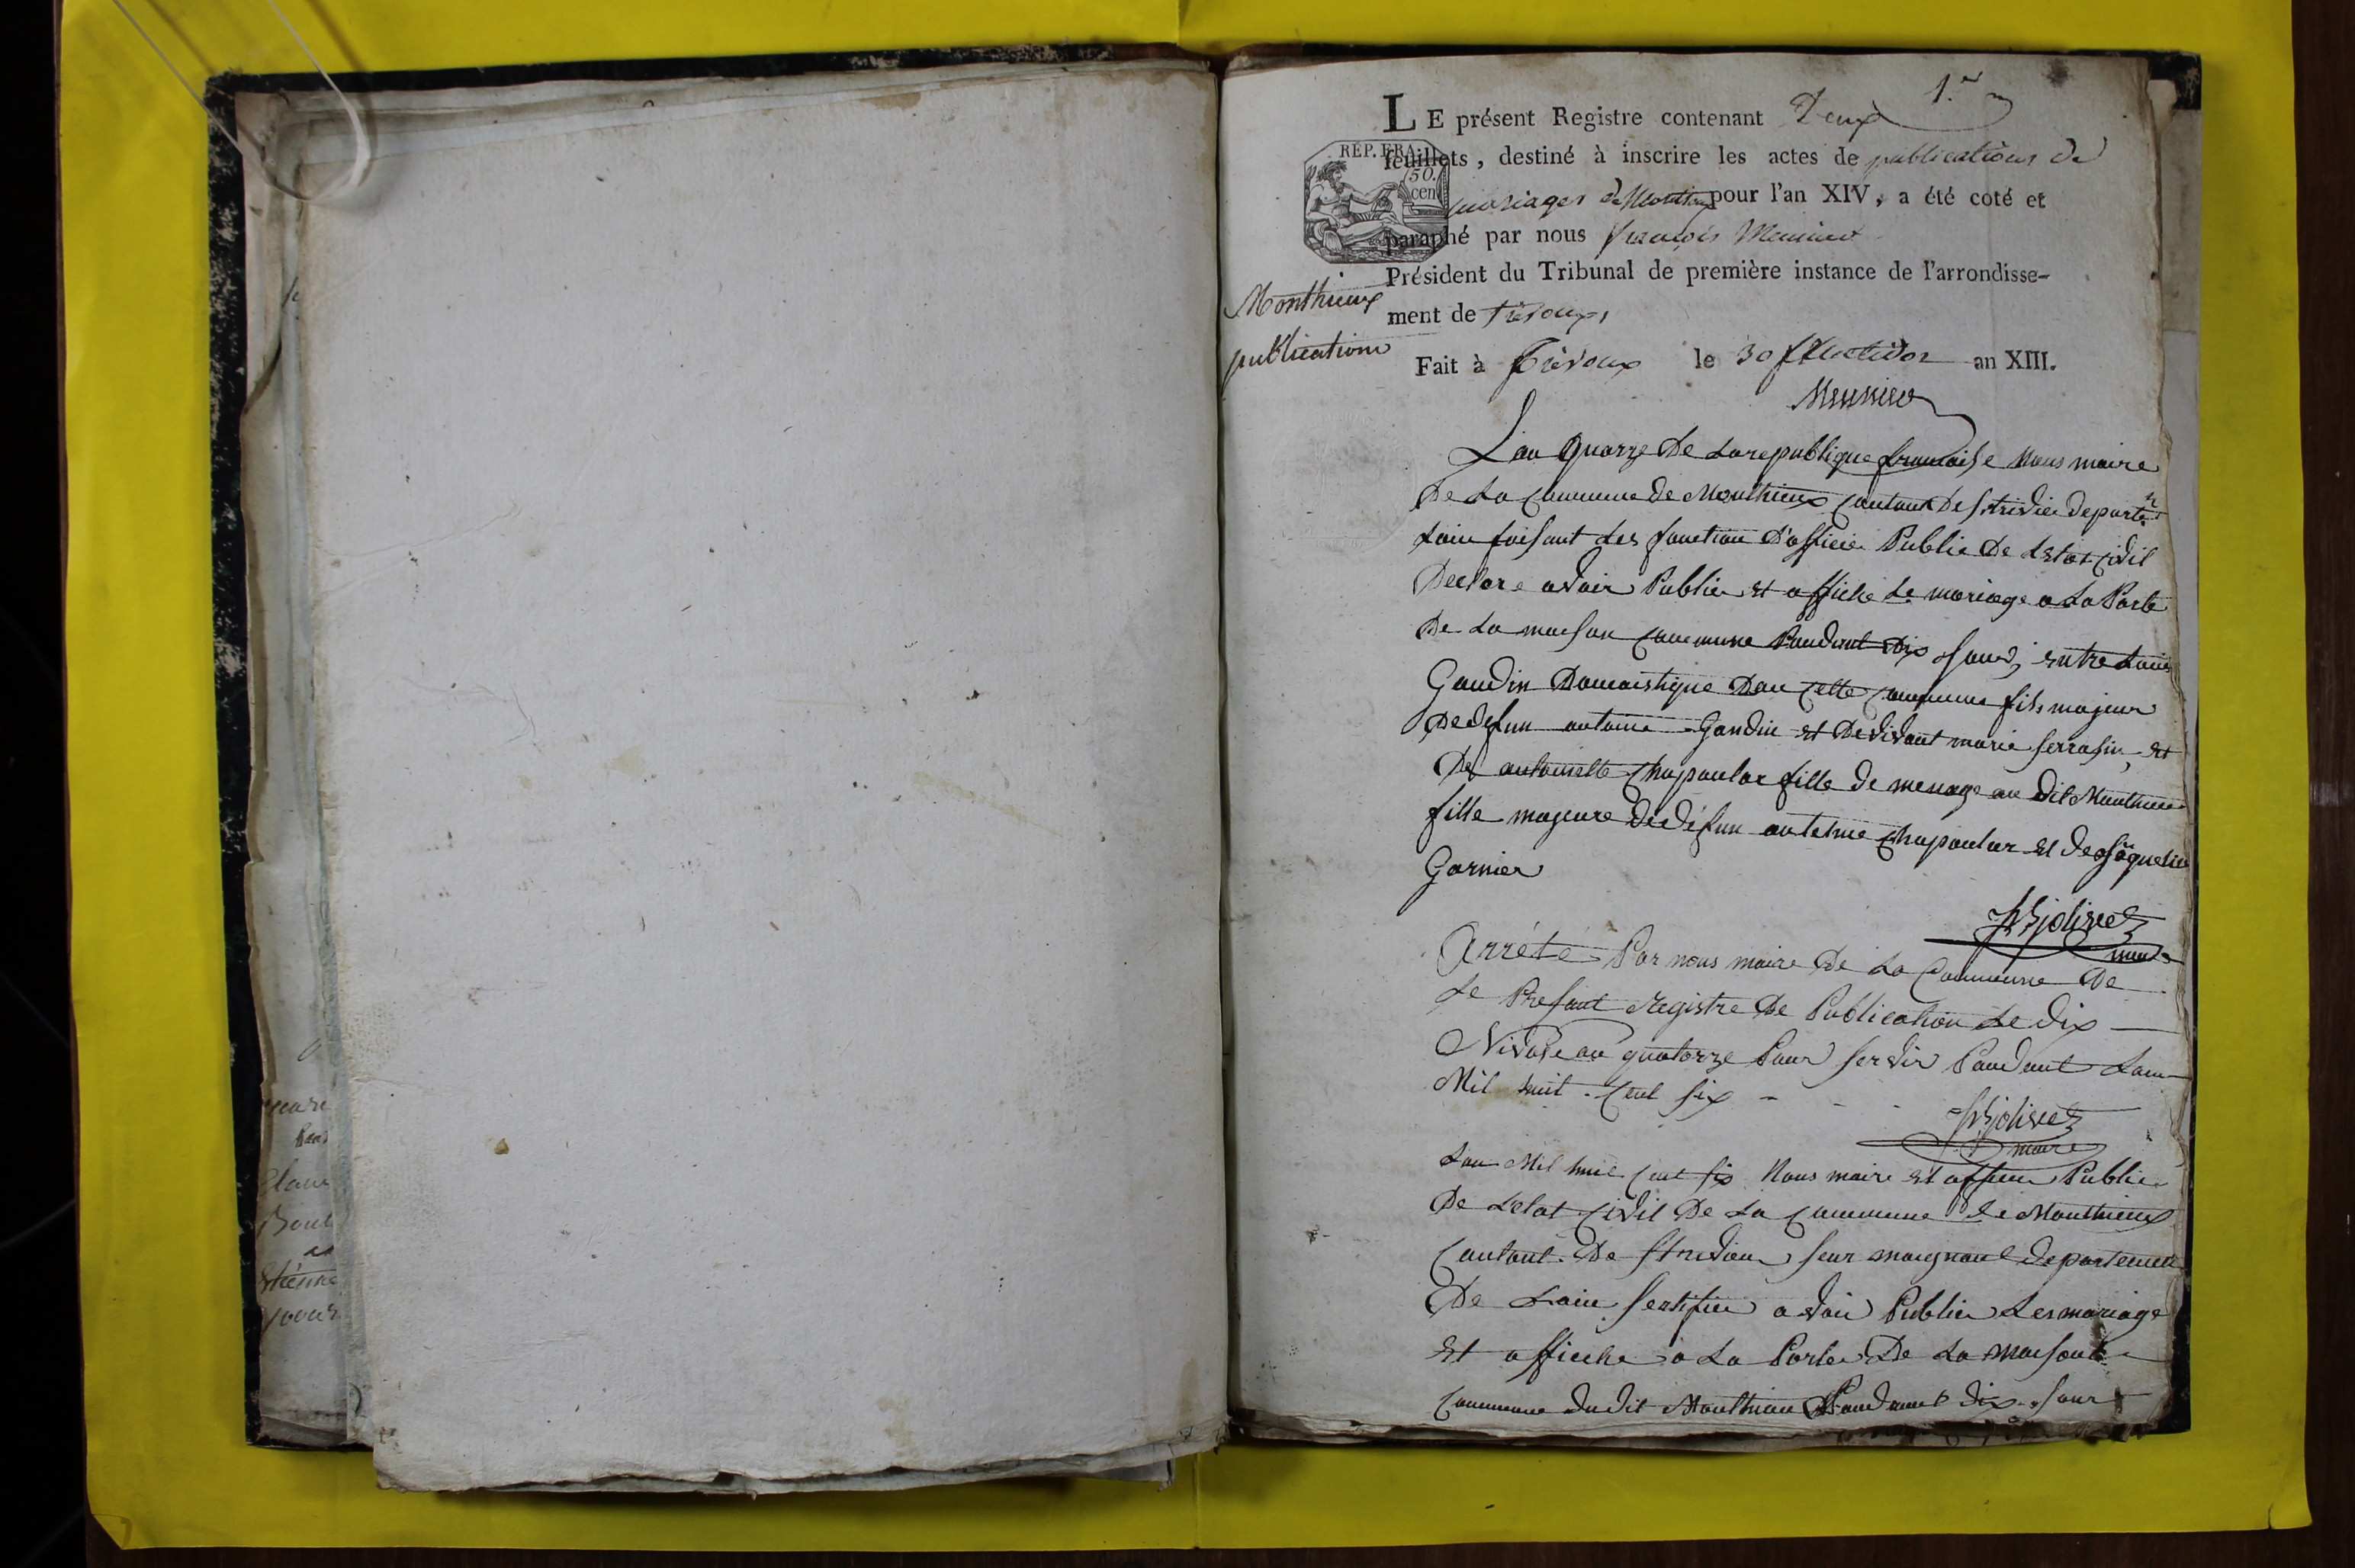 1.er
LE présent Registre contenant Deux
feuillets, destiné à inscrire les actes de publications de
mariages de Monthieux pour l'an XIV, a été coté et
paraphé par nous françois Meunier
Président du Tribunal de première instance de l'arrondisse-
ment de trévoux,
Fait à Trévoux le 30 fructidor an XIII.
Meunier
REP. FRA.
50.
cen
Monthieux
publications
L'an quarze De La republique francaise Nous maire
De La Commune de Monthieux Cantont De St trivier Departe.nt
Lain faisant Les fonction D'officie Public De Letat Civil
Declare avoir Publier Et affiche Le mariage a La Porte
De La maison Commune Pandant Dix Jours, entre Louis
Gaudin Domaistique Dan Cette Commune fils majeur
De defun antoine Gandin Et De vivant marie serrasin, Et
De antoinette Chapoular fille De menage au Dit Monthieux
fille majeure De Défun antoine Chapoular Et De
Garnier
JB jolivet
maire
Arrété Par nous maire De La Commune De
Le Present Registre De Publication Le Dix
Nivose an quatorze Pour servir Pandant Lan
Mil huit Cent six
JB jolivet
maire
Lan Mil huit Cent six Nous maire Et officier Public
De Letat Civil De La Commune De Monthieux
Cantont De St trivier seur moignant departement
De Lain sertifier avoir Publier Les mariage
Et affiche a La Porte De La maison
Commune du dit Monthieux Pandant dix Jour